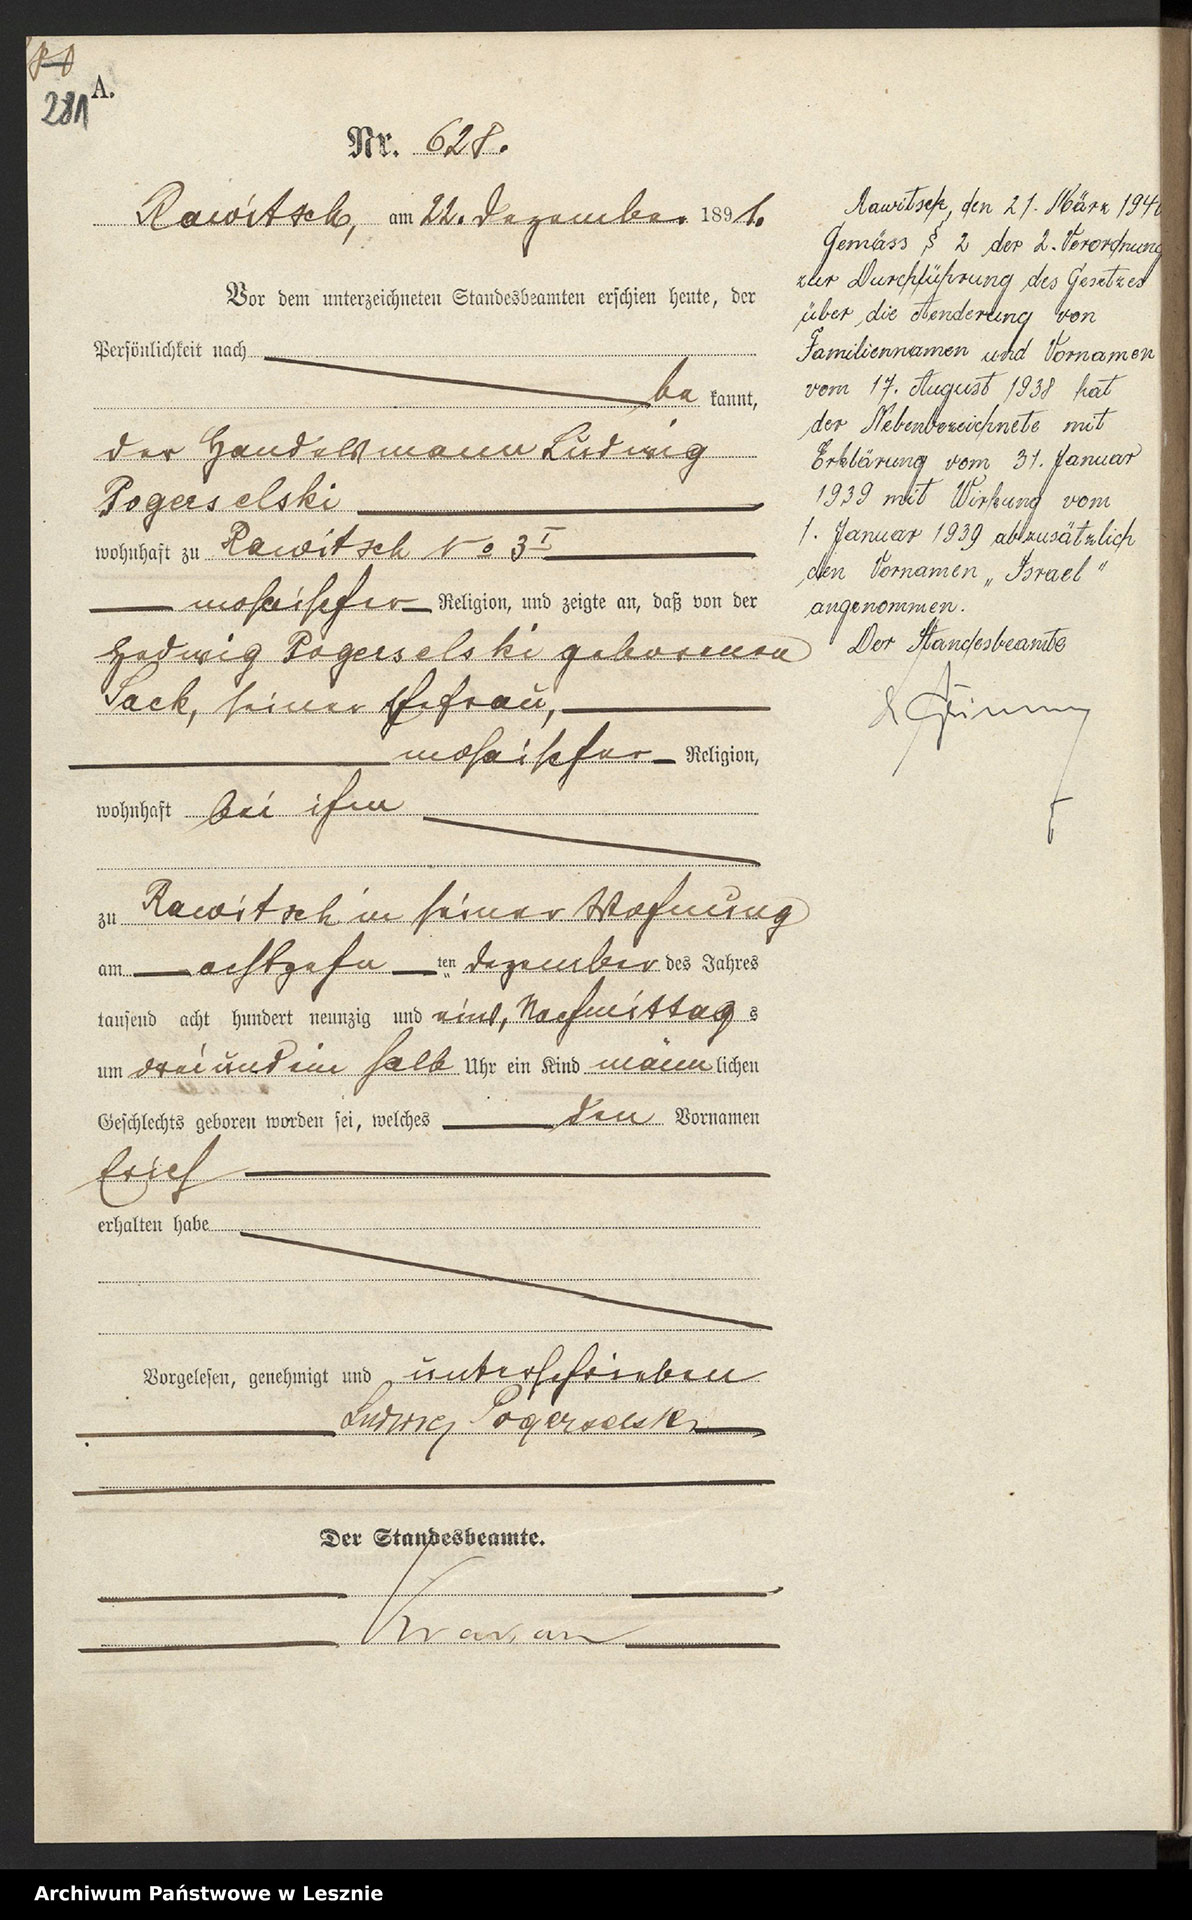 281
A.
Nr. 628.
Rawitsch, am 22. Dezember 1891.
Vor dem unterzeichneten Standesbeamten erschien heute, der
Persönlichkeit nach
be kannt,
der Handelsmann Ludwig
Pogerselski
wohnhaft zu Rawitsch No 3 I
mosaischer Religion, und zeigte an, daß von der
Hedwig Pogerselski geborenen
Sack, seiner Ehefrau,
mosaischer Religion,
wohnhaft bei ihm
zu Rawitsch in seiner Wohnung
am achtzehn ten Dezember des Jahres
tausend acht hundert neunzig und eins, Nachmittag s
um drei und ein halb Uhr ein Kind männ lichen
Geschlechts geboren worden sei, welches den Vornamen
Erich
erhalten habe
Vorgelesen, genehmigt und unterschrieben
Ludwig Pogerselski
Der Standesbeamte.
Rawitsch, den 21. März 194
Gemäss § 2 der 2. Verordnung
zur Durchführung des Gesetzes
über die Aenderung von
Familiennamen und Vornamen
vom 17. August 1938 hat
der Nebenbezeichnete mit
Erklärung vom 31. Januar
1939 mit Wirkung vom
1. Januar 1939 ab zusätzlich
den Vornamen „Israel"
angenommen.
Der Standesbeamte
Archiwum Państwowe w Lesznie